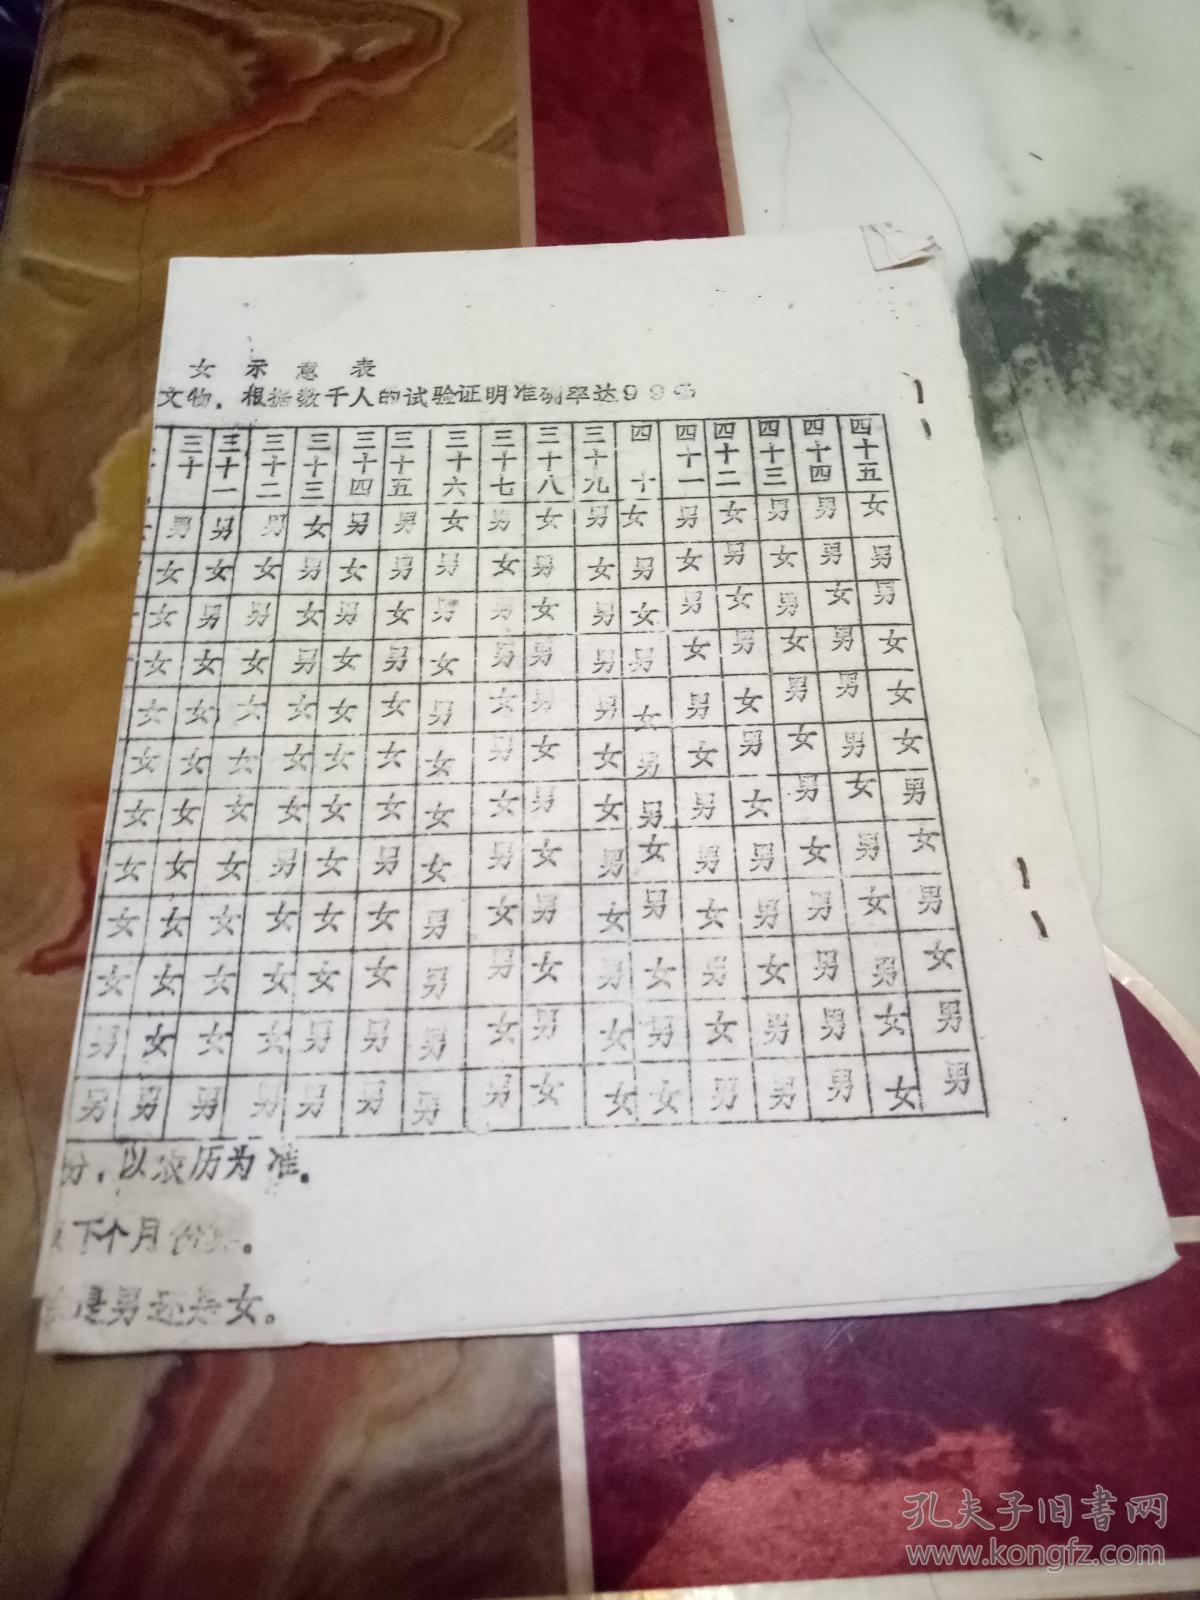 女 示 意 表
文物，根据数千人的试验证明准确率达99%
三十 三十一 三十二 三十三 三十四 三十五 三十六 三十七 三十八 三十九 四十 四十一 四十二 四十三 四十四 四十五
女 男 男 男 女 男 男 女 男 女 男 女 男 女 男 男 女
女 女 女 男 女 男 男 女 男 女 男 女 男 女 男 男
女 男 男 女 男 女 男 男 女 男 女 男 女 男 女 男
女 女 女 男 女 男 女 男 男 男 男 女 男 女 男 女
女 女 女 女 女 女 男 女 男 男 女 男 女 男 男 女
女 女 女 女 女 女 女 男 女 女 男 女 男 女 男 女
女 女 女 女 女 女 女 女 男 女 男 男 女 男 女 男
女 女 女 男 女 男 女 男 女 男 女 男 男 女 男 女
女 女 女 女 女 女 男 女 男 女 男 女 男 男 女 男
女 女 女 女 女 女 男 男 女 男 女 男 女 男 男 女
男 女 女 女 男 男 男 女 男 女 男 女 男 男 女 男
男 男 男 男 男 男 男 男 女 女 女 男 男 男 女 男
份，以农历为准。
下个月份算。
是男还是女。
孔夫子旧书网
www.kongfz.com